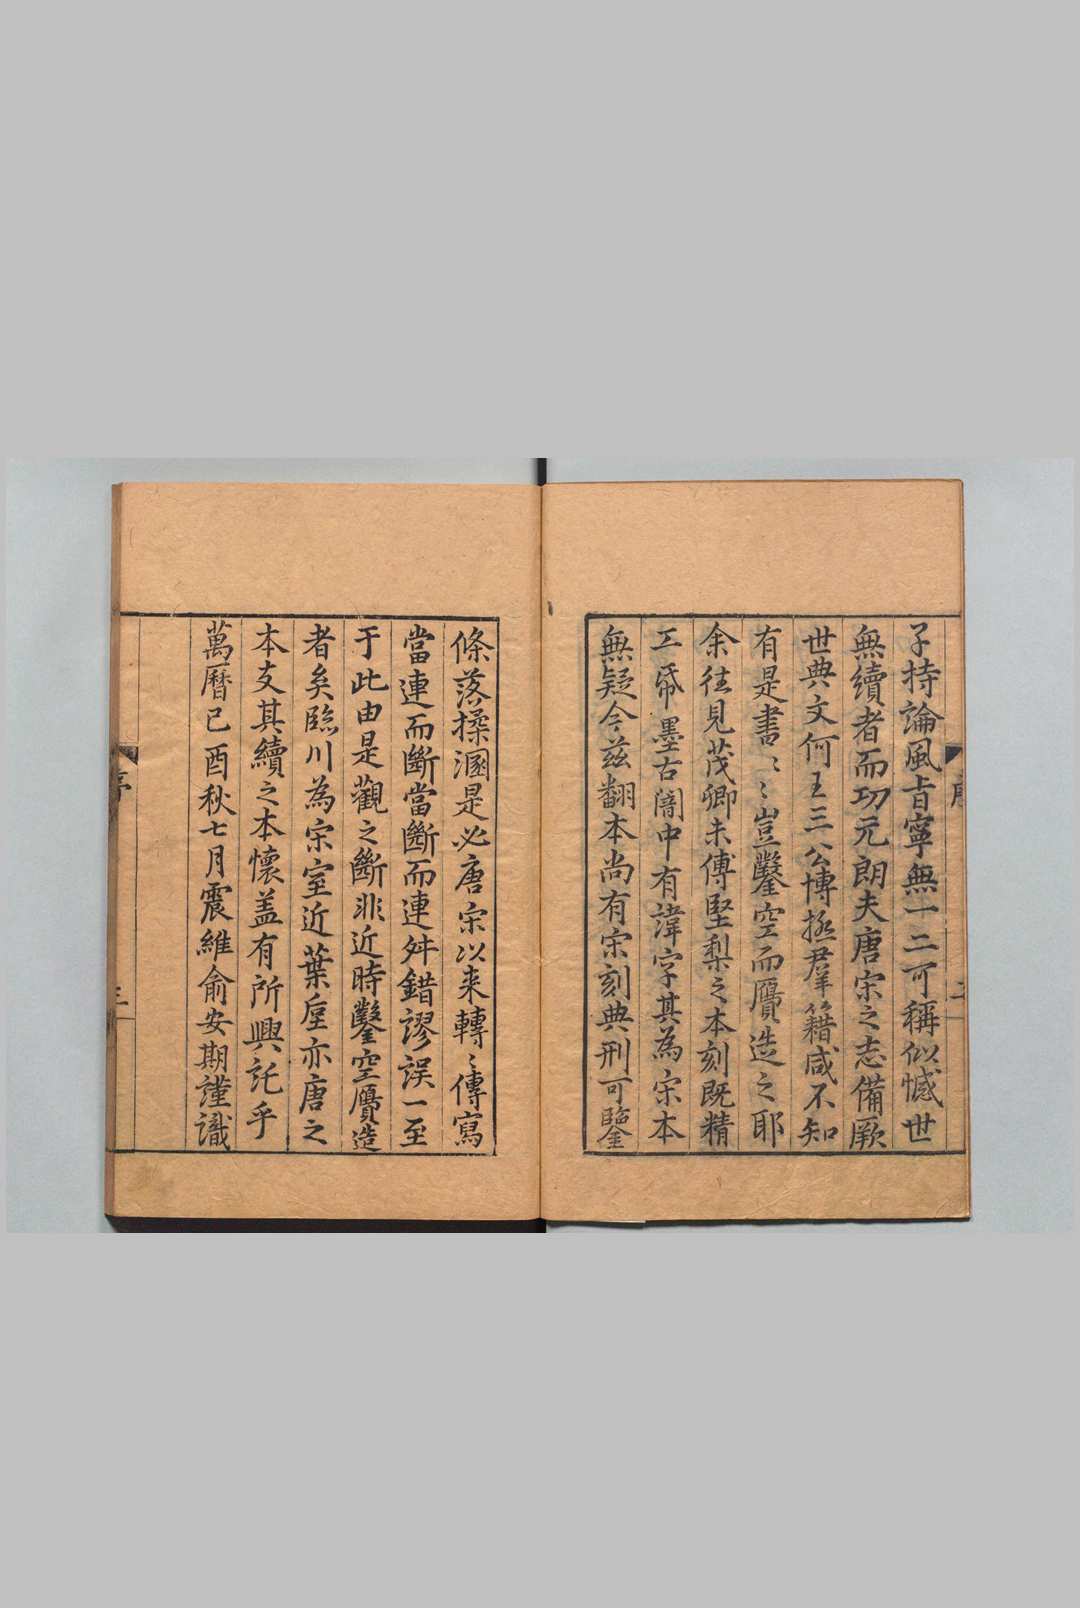 子持論風旨寧無一二可稱似憾世
無續者而功元朗夫唐宋之志備厥
世典文何王三公博拯羣籍咸不知
有是書〻〻豈鑿空而贋造之耶
余往見茂卿未傳堅梨之本刻既精
工帋墨古闇中有諱字其為宋本
無疑今茲翻本尚有宋刻典刑可鑒
條落操溷是必唐宋以来轉〻傳寫
當連而斷當斷而連舛錯謬誤一至
于此由是觀之斷非近時鑿空贋造
者矣臨川為宋室近葉垕亦唐之
本支其續之本懷盖有所興託乎
萬曆己酉秋七月震維俞安期謹識
序
二
序
三